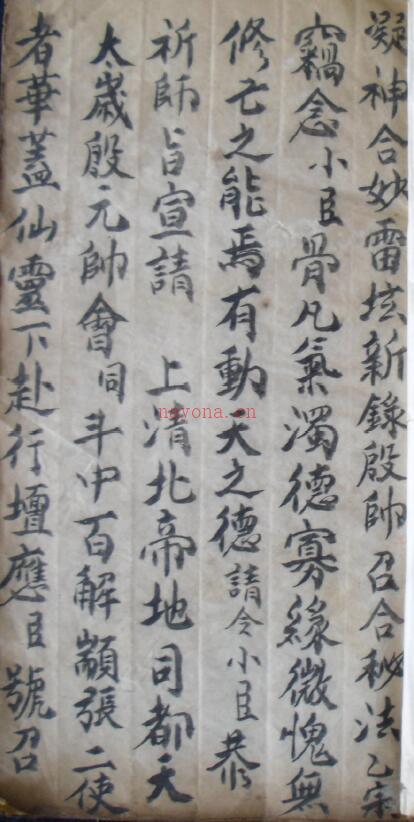 凝神合妙雷坛新錄殷帥召合秘法乙宗
竊念小臣骨凡氣濁德寡緣微愧無
修亡之能焉有動天之德請令小臣恭
祈師旨宣請 上清北帝地司都天
太歲殷元帥會同斗中百解顓張二使
者華蓋仙靈下赴行壇應臣號召
nayona.cn